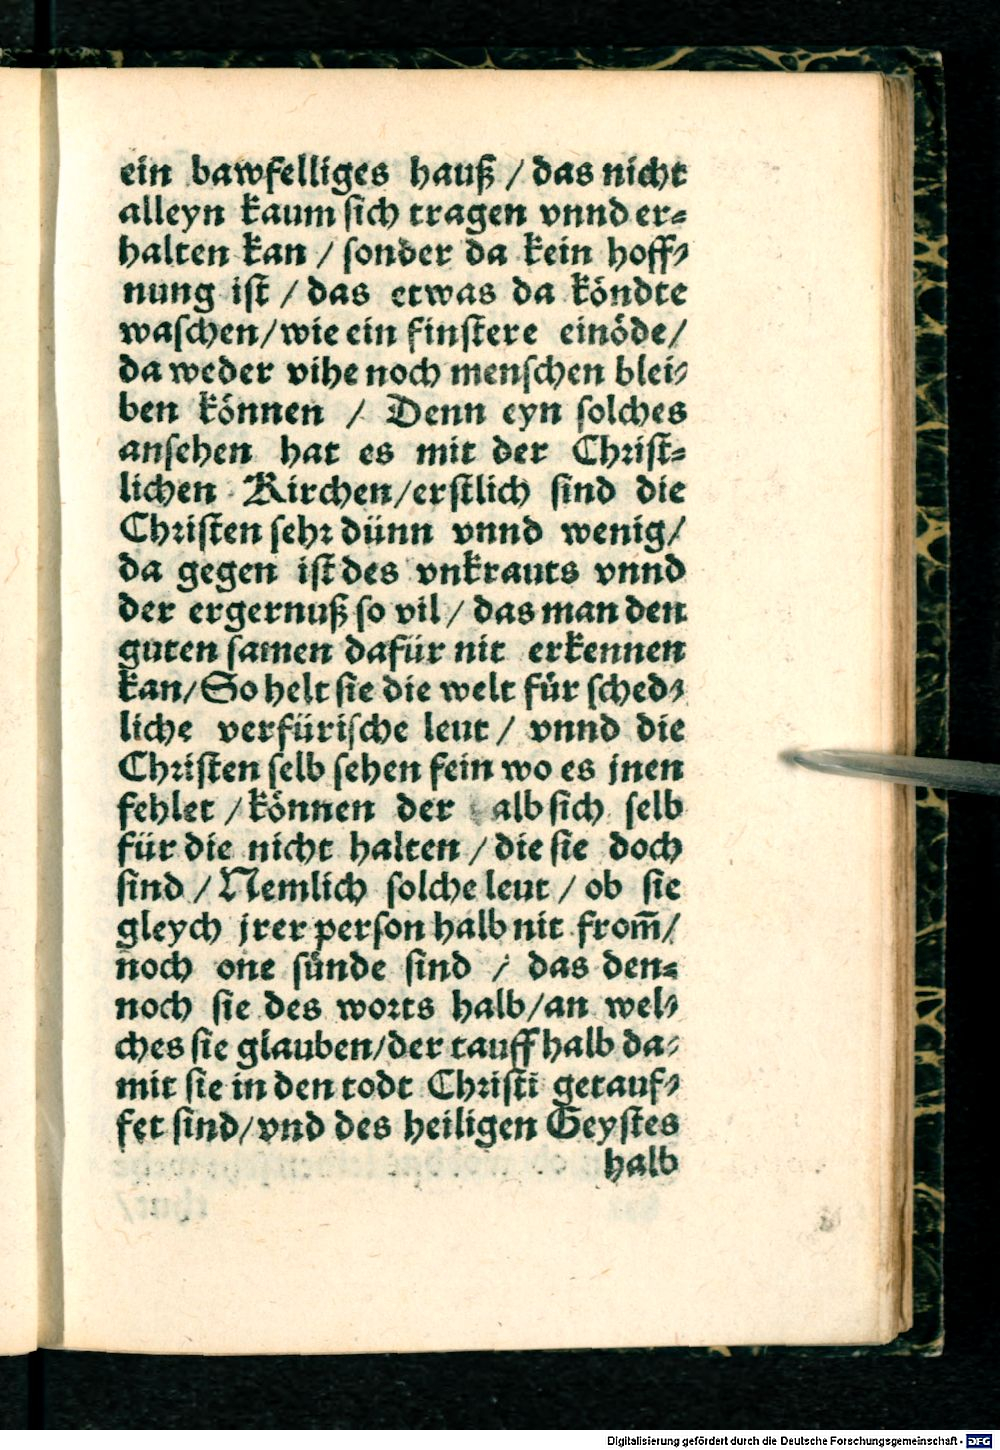 ein bawfelliges hauß / das nicht
alleyn kaum sich tragen vnnd er⸗
halten kan / sonder da kein hoff⸗
nung ist / das etwas da köndte
waschen/wie ein finstere einöde/
da weder vihe noch menschen blei⸗
ben können / Denn eyn solches
ansehen hat es mit der Christ⸗
lichen Kirchen/erstlich sind die
Christen sehr dünn vnnd wenig/
da gegen ist des vnkrauts vnnd
der ergernuß so vil / das man den
guten samen dafür nit erkennen
kan/So helt sie die welt für sched⸗
liche verfürische leut / vnnd die
Christen selb sehen fein wo es jnen
fehlet / können der albsich selb
für die nicht halten / die sie doch
sind / Nemlich solche leut / ob sie
gleych jrer person halb nit from̅/
noch one sünde sind / das den⸗
noch sie des worts halb/an wel⸗
ches sie glauben/der tauff halb da⸗
mit sie in den todt Christi getauf⸗
fet sind/vnd des heiligen Geystes
halb
Digitalisierung gefördert durch die Deutsche Forschungsgemeinschaft - DFG